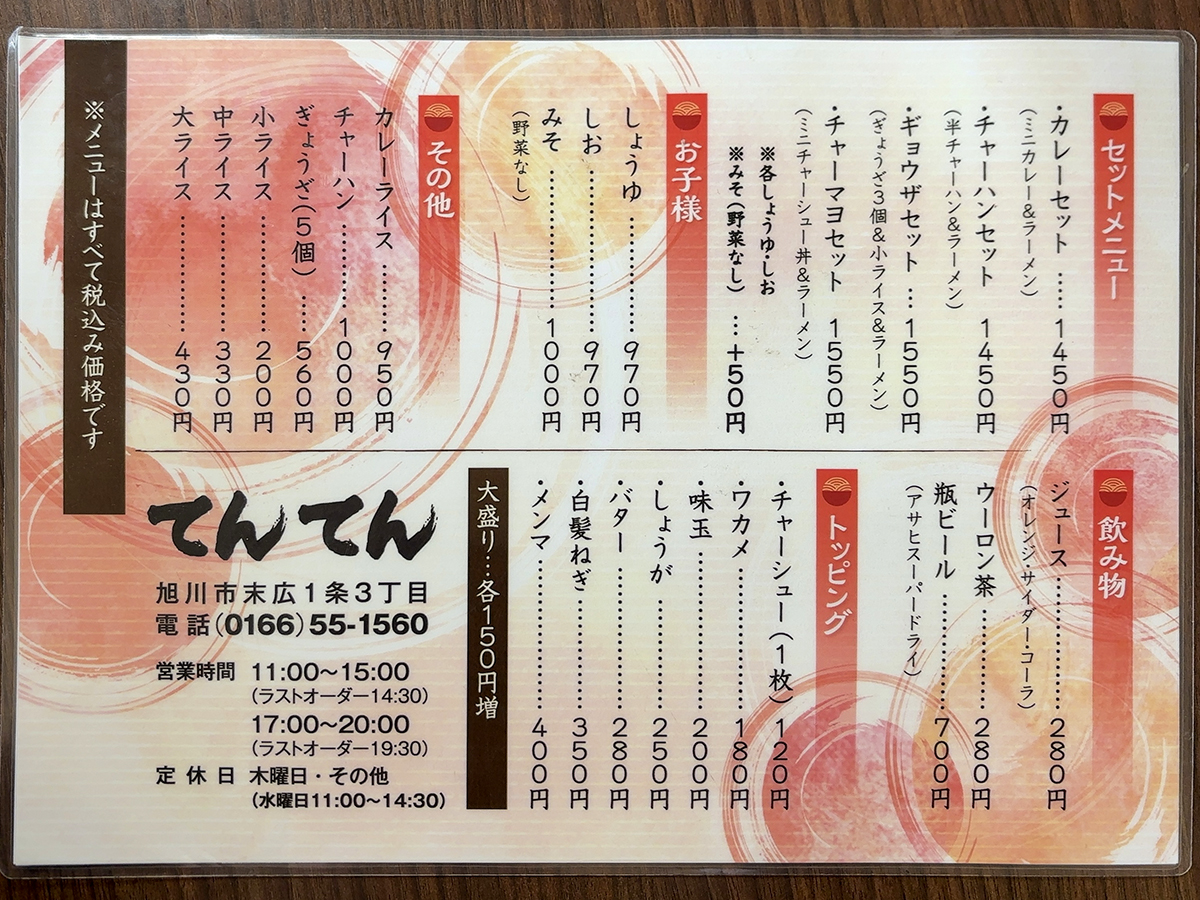 セットメニュー
・カレーセット …… 1450円
(ミニカレー&ラーメン)
・チャーハンセット 1450円
(半チャーハン&ラーメン)
・ギョウザセット … 1550円
(ぎょうざ3個&小ライス&ラーメン)
・チャーマヨセット 1550円
(ミニチャーシュー丼&ラーメン)
※各しょうゆ・しお
※みそ(野菜なし) … +50円
お子様
しょうゆ ………… 970円
しお ……………… 970円
みそ ……………… 1000円
(野菜なし)
その他
カレーライス …… 950円
チャーハン ……… 1000円
ぎょうざ(5個) … 560円
小ライス ………… 200円
中ライス ………… 330円
大ライス ………… 430円
※メニューはすべて税込み価格です
飲み物
ジュース ………… 280円
(オレンジ・サイダー・コーラ)
ウーロン茶 ……… 280円
瓶ビール ………… 700円
(アサヒスーパードライ)
トッピング
・チャーシュー(1枚) 120円
・ワカメ ………… 180円
・味玉 …………… 200円
・しょうが ……… 250円
・バター ………… 280円
・白髪ねぎ ……… 350円
・メンマ ………… 400円
大盛り…各150円増
てんてん
旭川市末広1条3丁目
電話(0166)55-1560
営業時間 11:00〜15:00
(ラストオーダー14:30)
17:00〜20:00
(ラストオーダー19:30)
定休日 木曜日・その他
(水曜日11:00〜14:30)